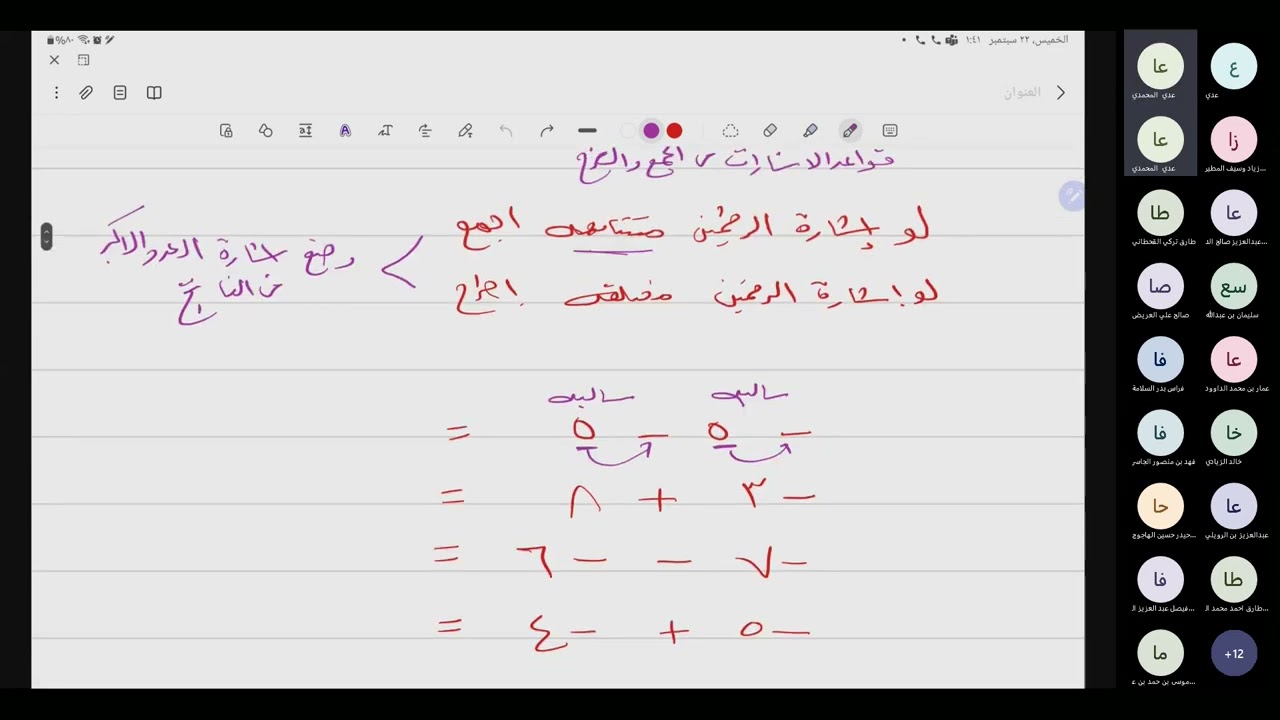 الخميس، ٢٢ سبتمبر ١:٤١
٪٨٠
العنوان
قواعد الاشارات في الجمع والطرح
لو إشارة الرقمين متشابهه اجمع
لو اشارة الرقمين مختلفه اطرح
وضع اشارة العدد الاكبر
في الناتج
سالبه سالبه
− ٥ − ٥ =
− ٣ + ٨ =
− ٧ − − ٦ =
− ٥ + − ٤ =
عا
عدي المحمدي
ع
عدي
عا
عدي المحمدي
زا
زياد وسيف المطير...
طا
طارق تركي القحطاني
عا
عبدالعزيز صالح الد...
صا
صالح علي العريض
سع
سليمان بن عبدالله
فا
فراس بدر السلامة
عا
عمار بن محمد الداوود
فا
فهد بن منصور الجاسر
خا
خالد الزيادي
حا
حيدر حسين الهاجوج...
عا
عبدالعزيز بن الرويلي
فا
فيصل عبد العزيز ال...
طا
طارق احمد محمد ال...
ما
موسى بن حمد بن ع...
+12